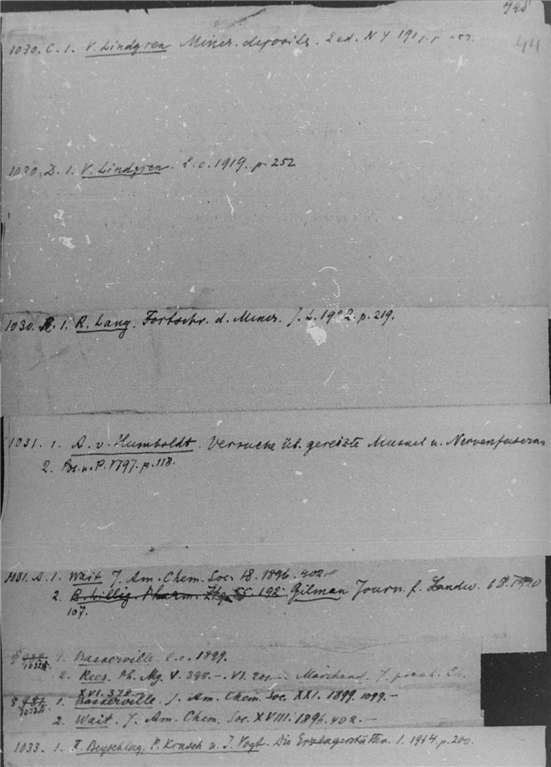 44
1030. C. 1. V. Lindgren Miner. deposits. 2 ed. N Y
1030. D. 1. V. Lindgren. L. c. 1919. p. 252
1030. 1. R. Lang. Fortschr. d. Miner. 7. L. 1922. p. 219.
1031. 1. A. v. Humboldt. Versuche üb. gereizte Muskel u. Nervenfasern
2. Pos. u. P. 1797. p. 118.
1031. A. 1. Wait J. Am. Chem. Soc. 18. 1896. 402.
2. Gilman Journ. f. Landw. 68. 1920
107.
§ 1. Baskerville l. c. 1899.
2. Rees. Ph. Mg. V. 398. – VI. 201. – Marchand. J. prakt. Ch.
XVI. 372.
§ 1. Baskerville. J. Am. Chem. Soc. XXI. 1899. 1099. –
2. Wait. J. Am. Chem. Soc. XVIII. 1896. 402. –
1033. 1. F. Beyschlag, P. Krusch u. J. Vogt. Die Erzlagerstätten 1. 1914. p. 200.